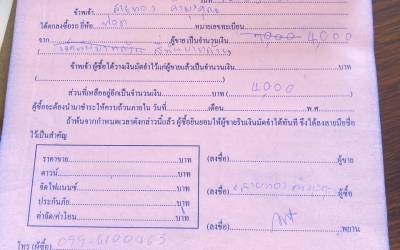 ข้าพเจ้า
ได้ตกลงซื้อรถ ยี่ห้อ ฟอด หมายเลขทะเบียน
จาก ผู้ขาย เป็นจำนวนเงิน 7,000 4,000
ข้าพเจ้า ผู้ซื้อได้วางเงินมัดจำไว้แก่ผู้ขายแล้วเป็นจำนวนเงิน บาท
( )
ส่วนที่เหลืออยู่อีกเป็นจำนวนเงิน 4,000 บาท
ผู้ซื้อจะต้องนำมาชำระให้ครบถ้วนภายใน วันที่ เดือน พ.ศ.
ถ้าพ้นจากกำหนดเวลาดังกล่าวนี้แล้ว ผู้ซื้อยินยอมให้ผู้ขายริบเงินมัดจำได้ทันที จึงได้ลงลายมือชื่อ
ไว้เป็นสำคัญ
ราคาขาย บาท (ลงชื่อ) ผู้ขาย
ดาวน์ บาท
จัดไฟแนนซ์ บาท (ลงชื่อ) ผู้ซื้อ
ประกันภัย บาท
ค่าจัด/ค่าโอน บาท (ลงชื่อ) พยาน
โทร (ผู้ซื้อ)